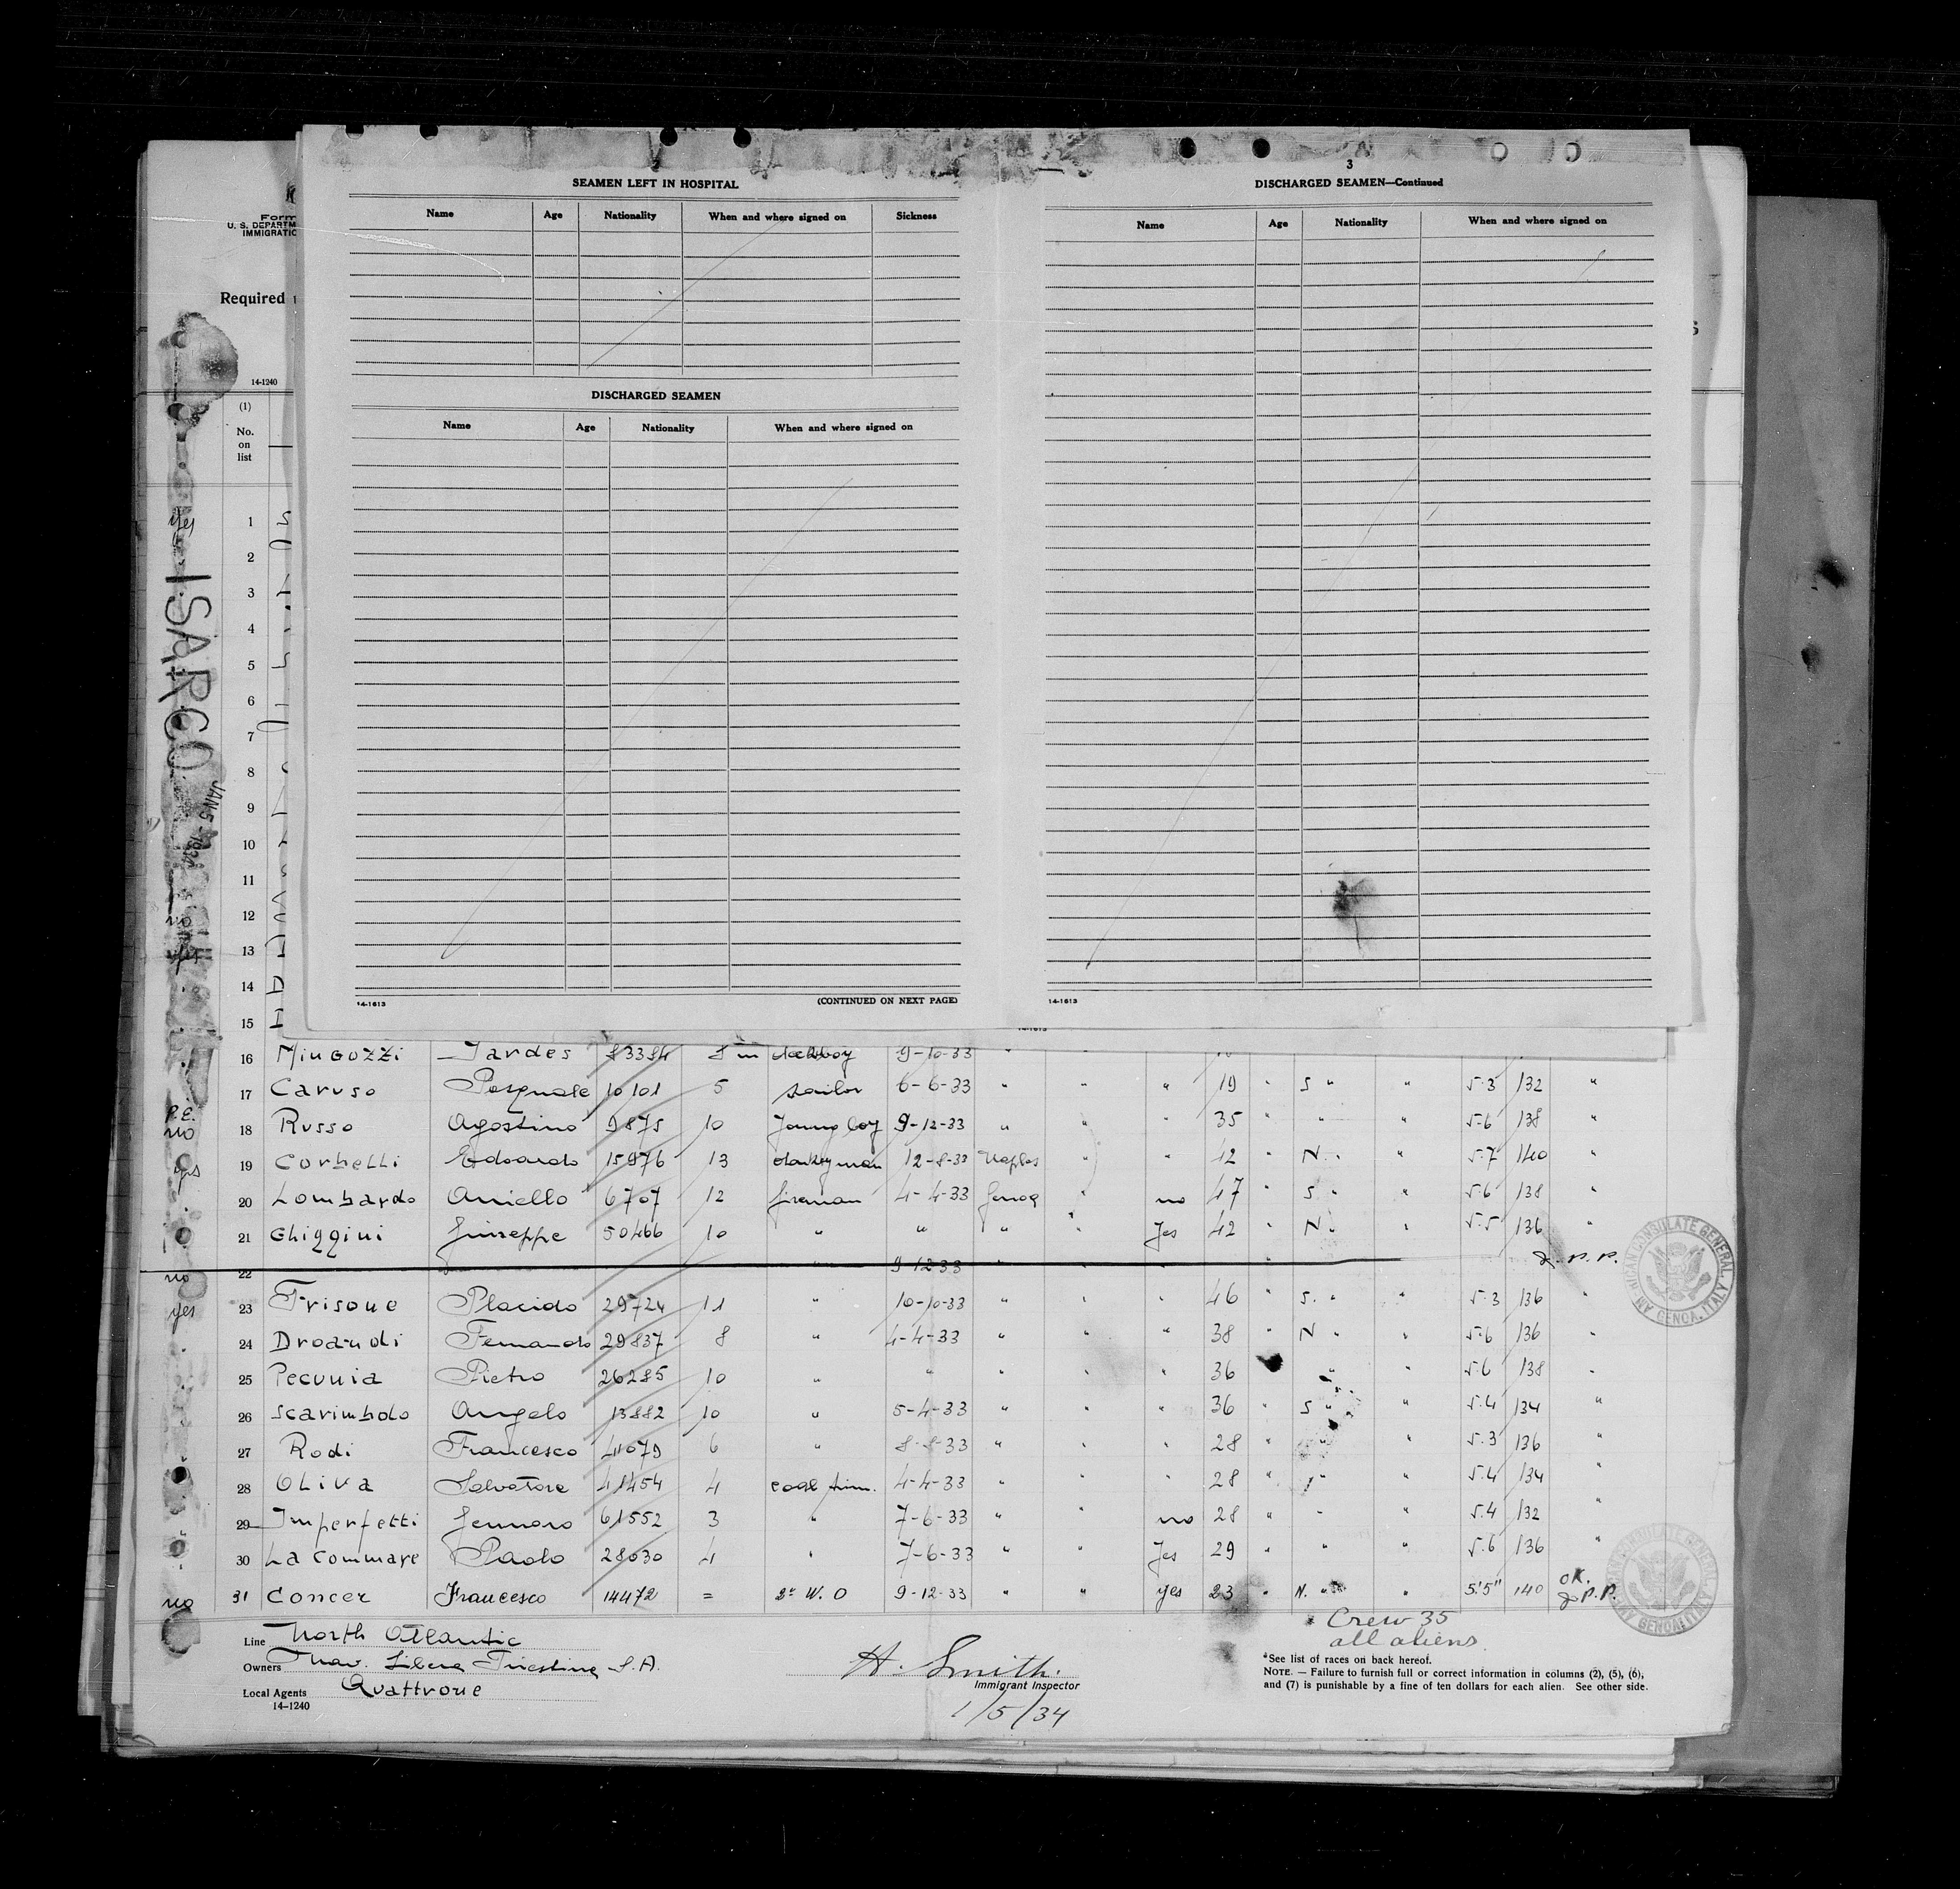 3
SEAMEN LEFT IN HOSPITAL
Name Age Nationality When and where signed on Sickness
DISCHARGED SEAMEN
Name Age Nationality When and where signed on
14-1613 (CONTINUED ON NEXT PAGE)
DISCHARGED SEAMEN—Continued
Name Age Nationality When and where signed on
14-1613
14-1613
Form
U. S. DEPARTM
IMMIGRATIO
Required
S
14-1240
(1)
No.
on
list
ISARCO
JAN 5 - 1934
yes 1
2
3
4
5
6
7
8
9
10
11
no 12
yes 13
14 D
15 I
16 Mingozzi Jardes 83384 8 m deckboy 9-10-33 "
17 Caruso Pasquale 10101 5 sailor 6-6-33 " " " 19 " S " " 5.3 132 "
P.E.
no 18 Russo Agostino 9875 10 Young boy 9-12-33 " " " 35 " " " 5.6 138 "
yes 19 Corbelli Edoardo 15976 13 donkeyman 12-8-33 Naples " " 42 " N " " 5.7 140 "
20 Lombardo Aniello 6707 12 fireman 4-4-33 Genoa " no 47 " S " " 5.6 138 "
21 Ghiggini Giuseppe 50466 10 " " " " Yes 42 " N " " 5.5 136 "
no 22 " 9-12-33 " " " " P.P.
yes 23 Frisone Placido 29724 11 " 10-10-33 " " " 46 " S. " " 5.3 136 "
24 Droandi Fernando 29837 8 " 4-4-33 " " " 38 " N " " 5.6 136 "
25 Pecunia Pietro 26285 10 " " " " " 36 " " 5.6 138 "
26 Scarimbolo Angelo 13882 10 " 5-4-33 " " " 36 " S " " 5.4 134 "
27 Rodi Francesco 41079 6 " 8-8-33 " " " 28 " " " 5.3 136 "
28 Oliva Salvatore 41454 4 coal trim. 4-4-33 " " " 28 " " " 5.4 134 "
29 Imperfetti Gennaro 61552 3 " 7-6-33 " " no 28 " " " 5.4 132 "
30 La Commare Paolo 28030 4 " 7-6-33 " " Yes 29 " " " 5.6 136 "
no 31 Concer Francesco 14472 = 2° W. O 9-12-33 " " yes 23 " N. " " 5'5" 140 OK. P.P.
AMERICAN CONSULATE GENERAL, GENOA, ITALY
Crew 35
all aliens.
Line North Atlantic
Owners Nav. Libera Triestina S.A.
Local Agents Quattrone
14-1240
H. Smith.
Immigrant Inspector
1/5/34
*See list of races on back hereof.
NOTE. — Failure to furnish full or correct information in columns (2), (5), (6),
and (7) is punishable by a fine of ten dollars for each alien. See other side.